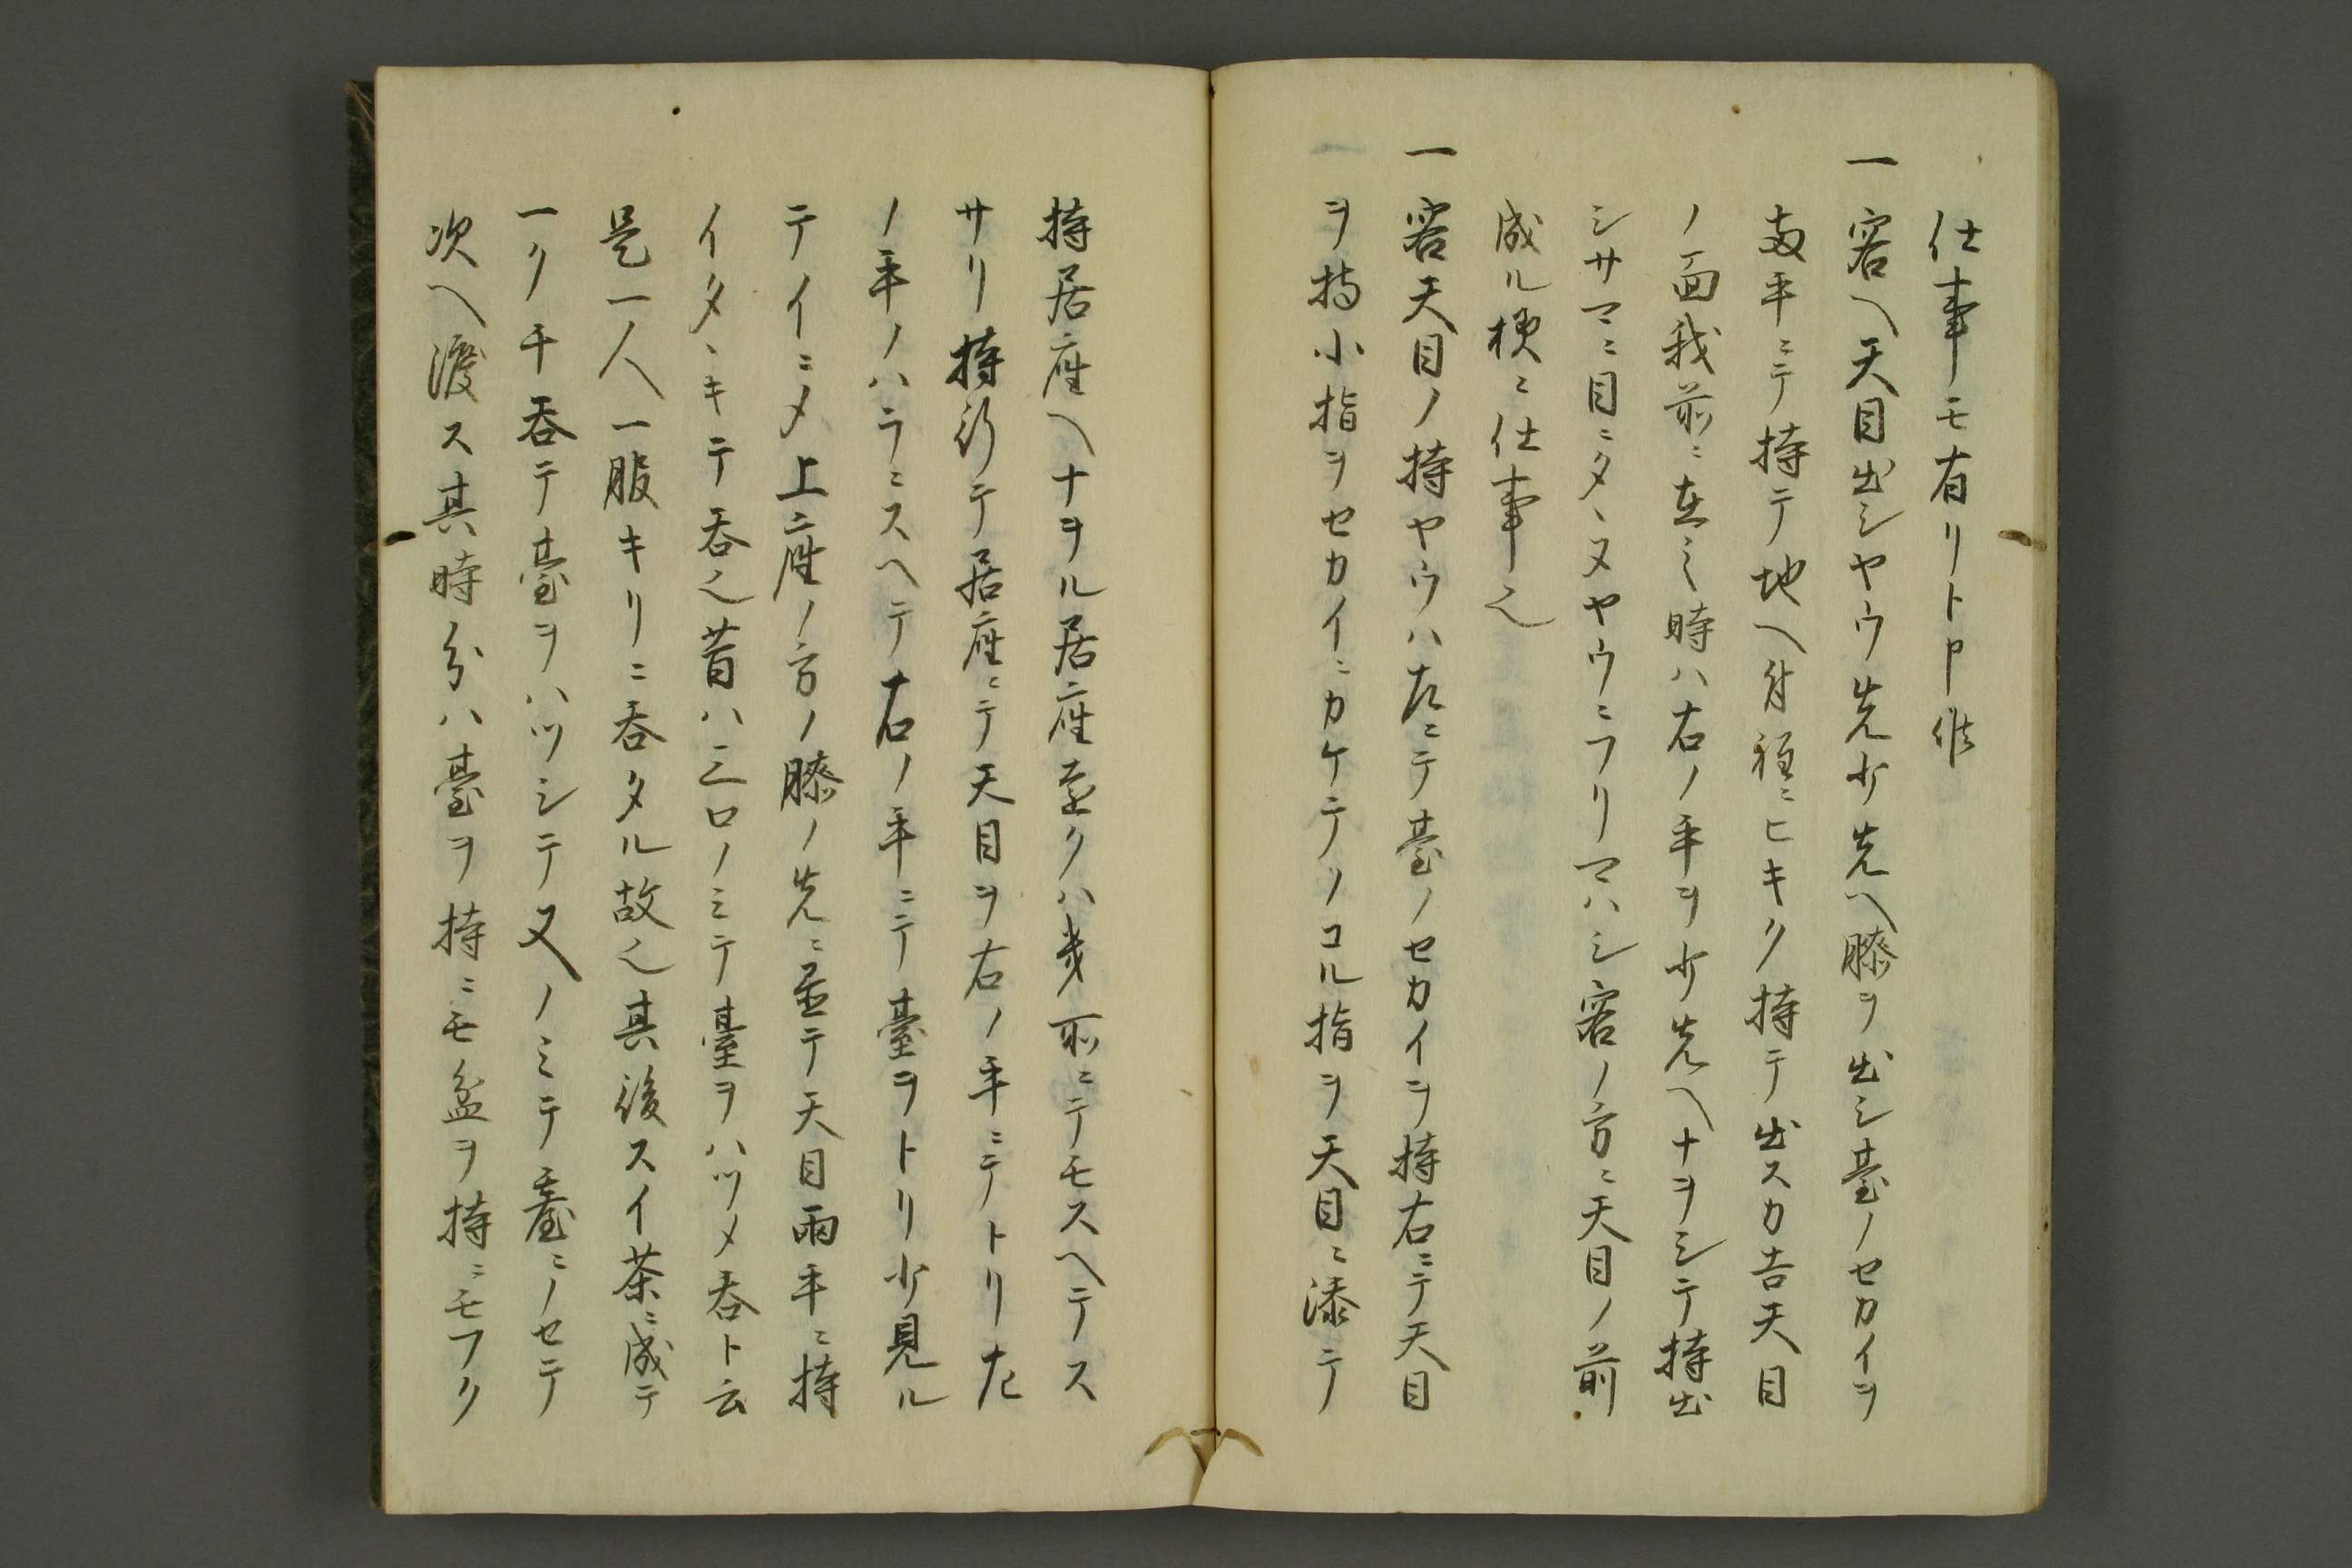 仕事モ有リト申伝
一 客ヘ天目出シヤウ先少先ヘ膝ヲ出シ臺ノセカイヲ
両手ニテ持テ地ヘ付程ニヒキク持テ出スカ吉天目
ノ面我前ニ在之時ハ右ノ手ヲ少先ヘナヲシテ持出
シサマニ目ニタヽヌヤウニフリマハシ客ノ方ニ天目ノ前
成ル様ニ仕事也
一 客天目ノ持ヤウハ左ニテ臺ノセカイヲ持右ニテ天目
ヲ持小指ヲセカイニカケテノコル指ヲ天目ニ添テ
持居座ヘナヲル居座遠クハ幾所ニテモスヘテス
サリ持行テ居座ニテ天目ヲ右ノ手ニテトリ左
ノ手ノハラニスヘテ右ノ手ニテ臺ヲトリ少見ル
テイニメ上座ノ方ノ膝ノ先ニ置テ天目両手ニ持
イタヽキテ呑也昔ハ三口ノミテ臺ヲハツメ呑ト云
是一人一服キリニ呑タル故也其後スイ茶ニ成テ
一ク チ呑テ臺ヲハツシテ又ノミテ臺ニノセテ
次ヘ渡ス其時分ハ臺ヲ持ニモ盆ヲ持ニモフク